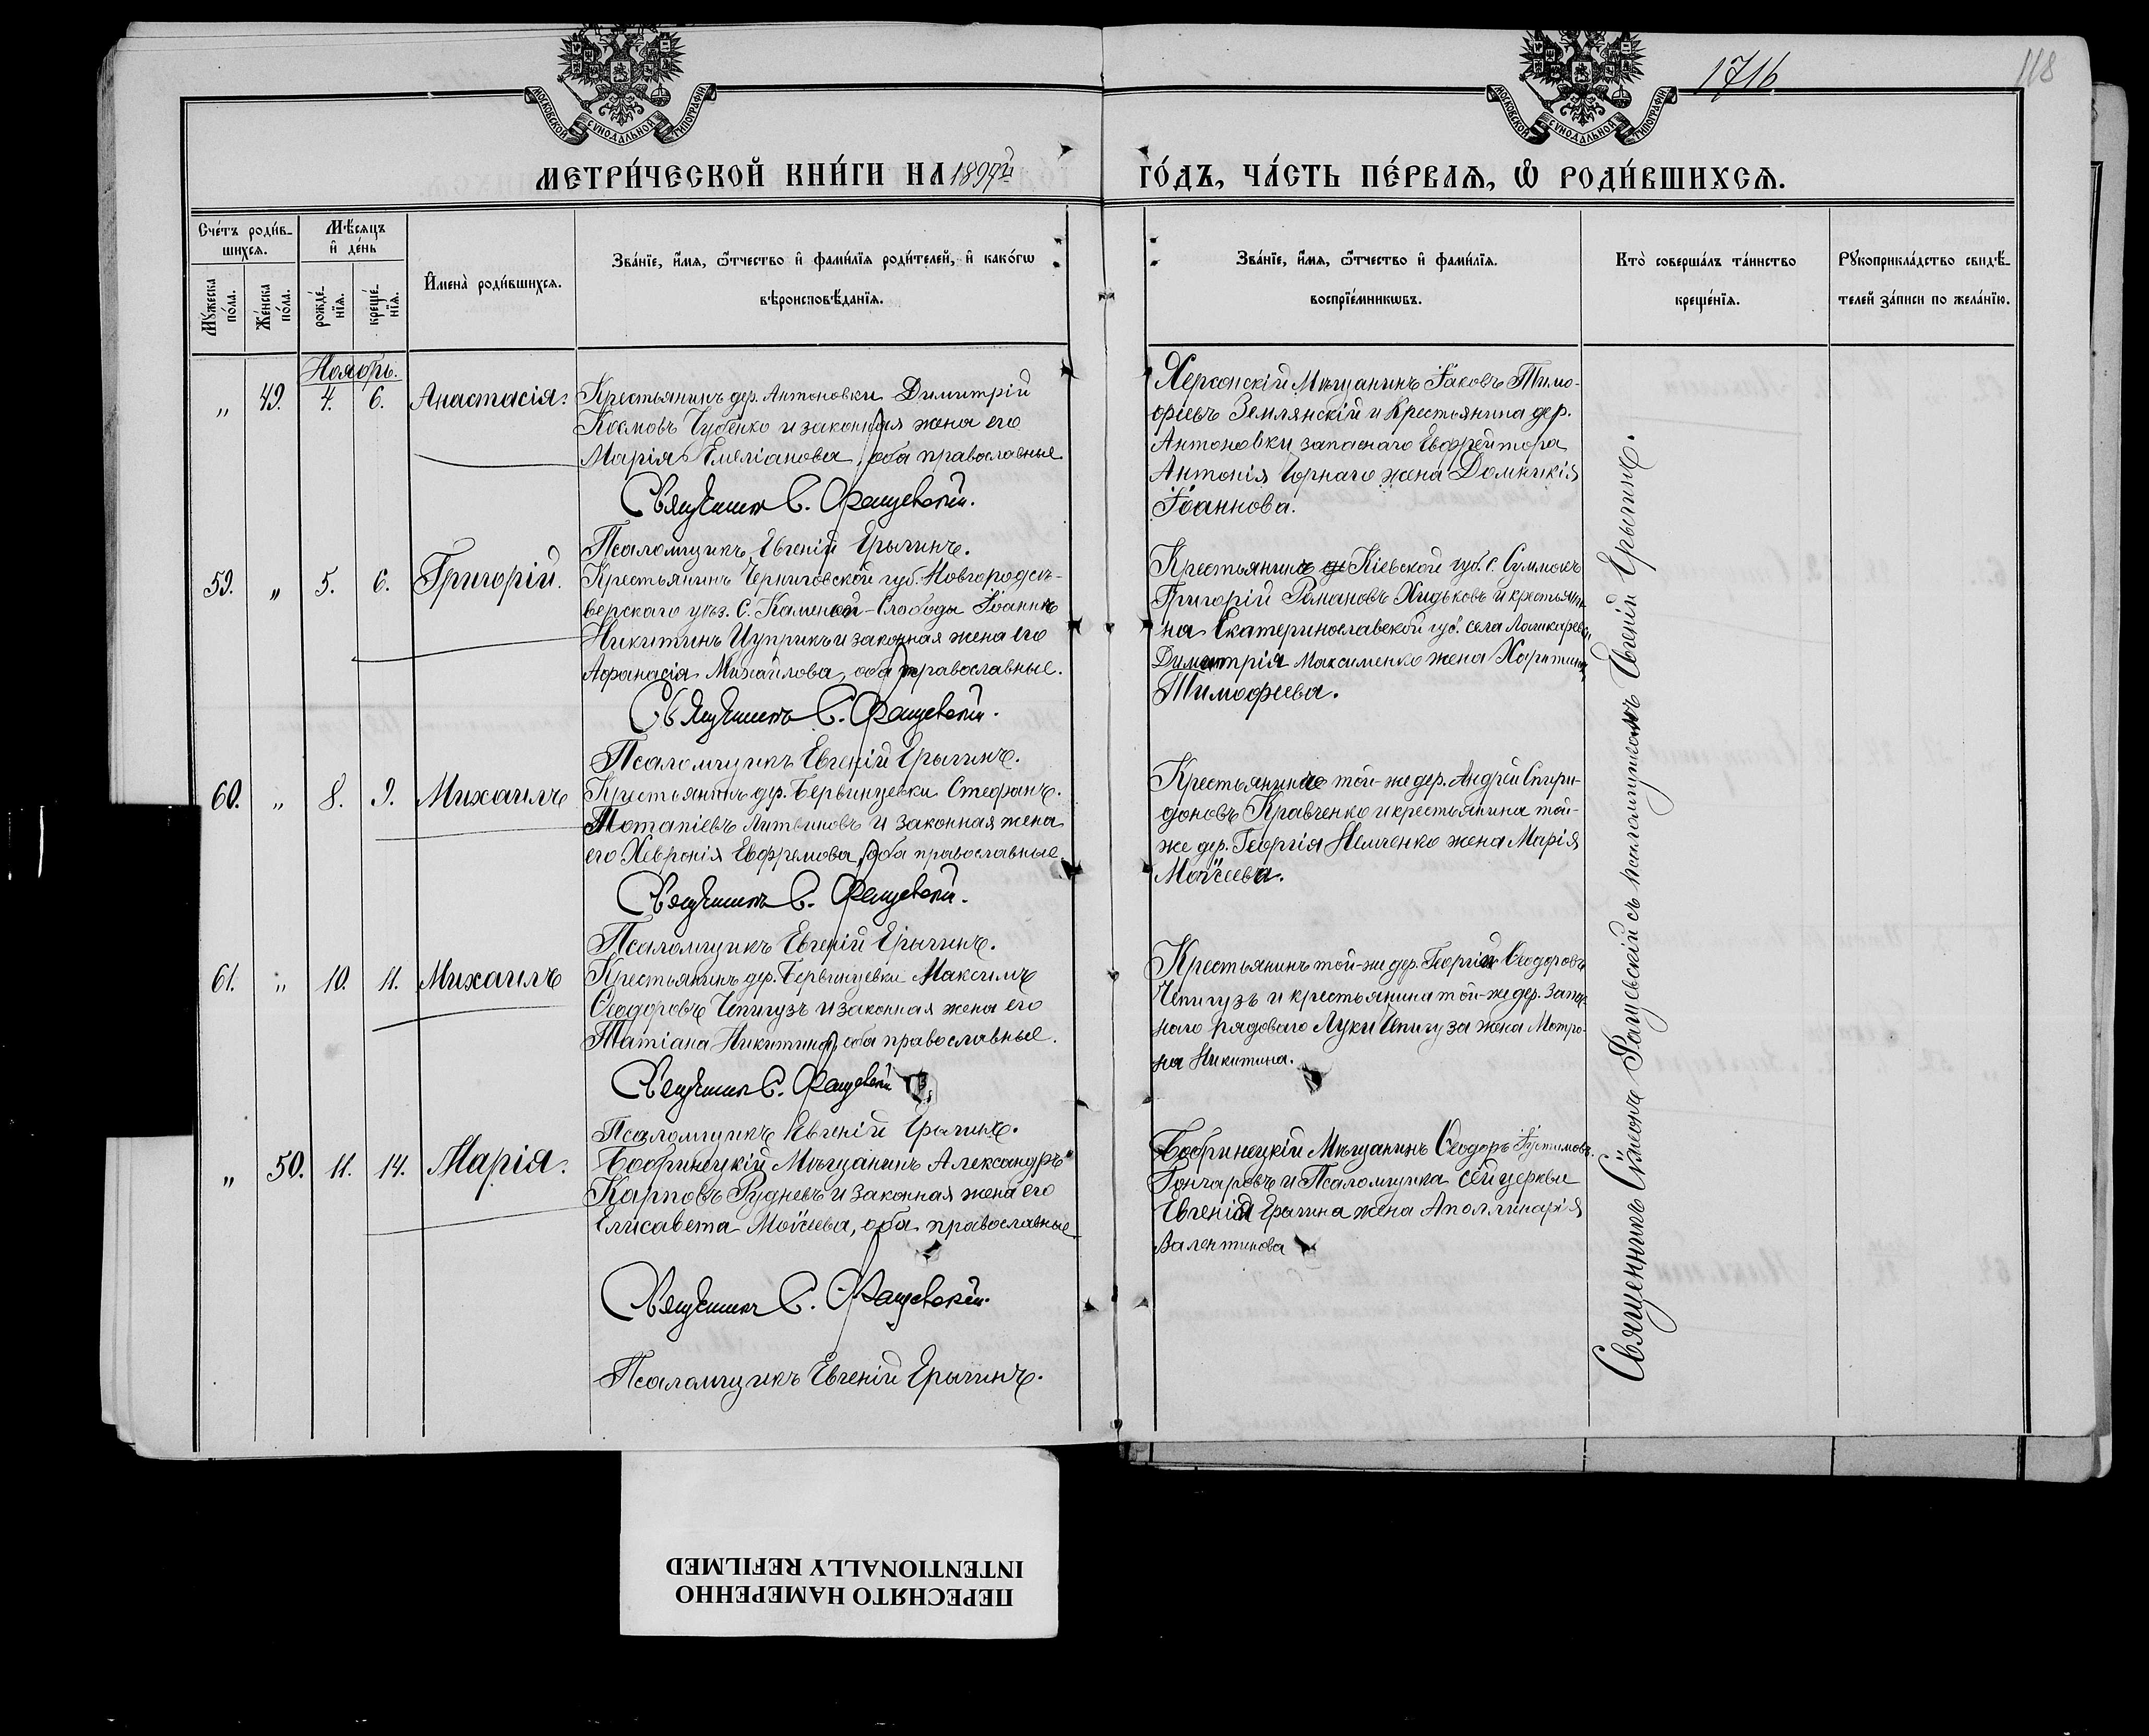 МОСКОВСКОЙ СѴНОДАЛЬНОЙ ТИПОГРАФІИ
МОСКОВСКОЙ СѴНОДАЛЬНОЙ ТИПОГРАФІИ
1716
118
МЕТРИ́ЧЕСКОЙ КНИ́ГИ НА 1897й
ГО́ДЪ, ЧА́СТЬ ПЕ́РВАѦ, Ѡ҆ РОДИ́ВШИХСѦ.
Сче́тъ роди́в-
шихся.
Мѣ́сяцъ
и҆ де́нь
Му́жеска
по́ла.
Же́нска
по́ла.
рожде́-
нїя.
креще́-
нїя.
И҆мена̀ роди́вшихся.
Зва́нїе, и҆́мя, ѻ҆́тчество и҆ фами́лїя роди́телей, и҆ како́гѡ
вѣроисповѣ́данїя.
Зва́нїе, и҆́мя, ѻ҆́тчество и҆ фами́лїя.
воспрїе́мникѡвъ.
Кто̀ соверша́лъ та́инство
креще́нїя.
Рукоприкла́дство свидѣ́-
телей за́писи по жела́нїю.
Ноябрь.
„ 49. 4. 6. Анастасія.
Крестьянинъ дер. Антоновки Димитрій
Космовъ Чубенко и законная жена его
Марія Емеліанова, оба православные
Священникъ С. Ращевскій.
Псаломщикъ Евгеній Ерыгинъ.
Херсонскій Мѣщанинъ Іаковъ Тимо-
фіевъ Землянскій и Крестьянина дер.
Антоновки запаснаго Ефрейтора
Антонія Горнаго жена Домникія
Іоаннова.
59. „ 5. 6. Григорій.
Крестьянинъ Черниговской губ. Новгородсѣ-
верскаго уѣз. С. Каменской-Слободы Іоаннъ
Никитинъ Цуприкъ и законная жена его
Афанасія Михайлова, оба православные.
Священникъ С. Ращевскій.
Псаломщикъ Евгеній Ерыгинъ.
Крестьянинъ Кіевской губ. с. Суммокъ
Григорій Романовъ Хидьковъ и крестьяни-
на Екатеринославской губ. села
Димитрія Максименко жена Харитина
Тимофеева.
60. „ 8. 9. Михаилъ
Крестьянинъ дер. Бервинцевки Стефанъ.
Потапіевъ Литвиновъ и законная жена
его Хевронія Евфремова, оба православные.
Священникъ С. Ращевскій.
Псаломщикъ Евгеній Ерыгинъ.
Крестьянинъ той-же дер. Андрей Спири-
доновъ Кравченко и крестьянина той-
же дер. Георгія Немченко жена Марія
Моѵсеева.
61. „ 10. 11. Михаилъ
Крестьянинъ дер. Бервинцевки Максимъ
Ѳеодоровъ Чепигузъ и законная жена его
Татіана Никитина, оба православные.
Священникъ С. Ращевскій
Псаломщикъ Евгеній Ерыгинъ.
Крестьянинъ той-же дер. Георгій Ѳеодоровъ
Чепигузъ и крестьянина той-же дер. Запас-
наго рядоваго Луки Чепигуза жена Матро-
на Никитина.
„ 50. 11. 14. Марія.
Бобринецкій Мѣщанинъ Александръ
Карповъ Рудневъ и законная жена его
Елисавета Моѵсеева, оба православные
Священникъ С. Ращевскій.
Псаломщикъ Евгеній Ерыгинъ.
Бобринецкій Мѣщанинъ Ѳеодоръ Іустимовъ.
Гончаровъ и Псаломщика сей церкви
Евгенія Ерыгина жена Аполлинарія
Валентинова
Священникъ Сѵмеонъ Ращевскій съ псаломщикомъ Евгеній Ерыгинъ.
ПЕРЕСНЯТО НАМЕРЕННО
INTENTIONALLY REFILMED